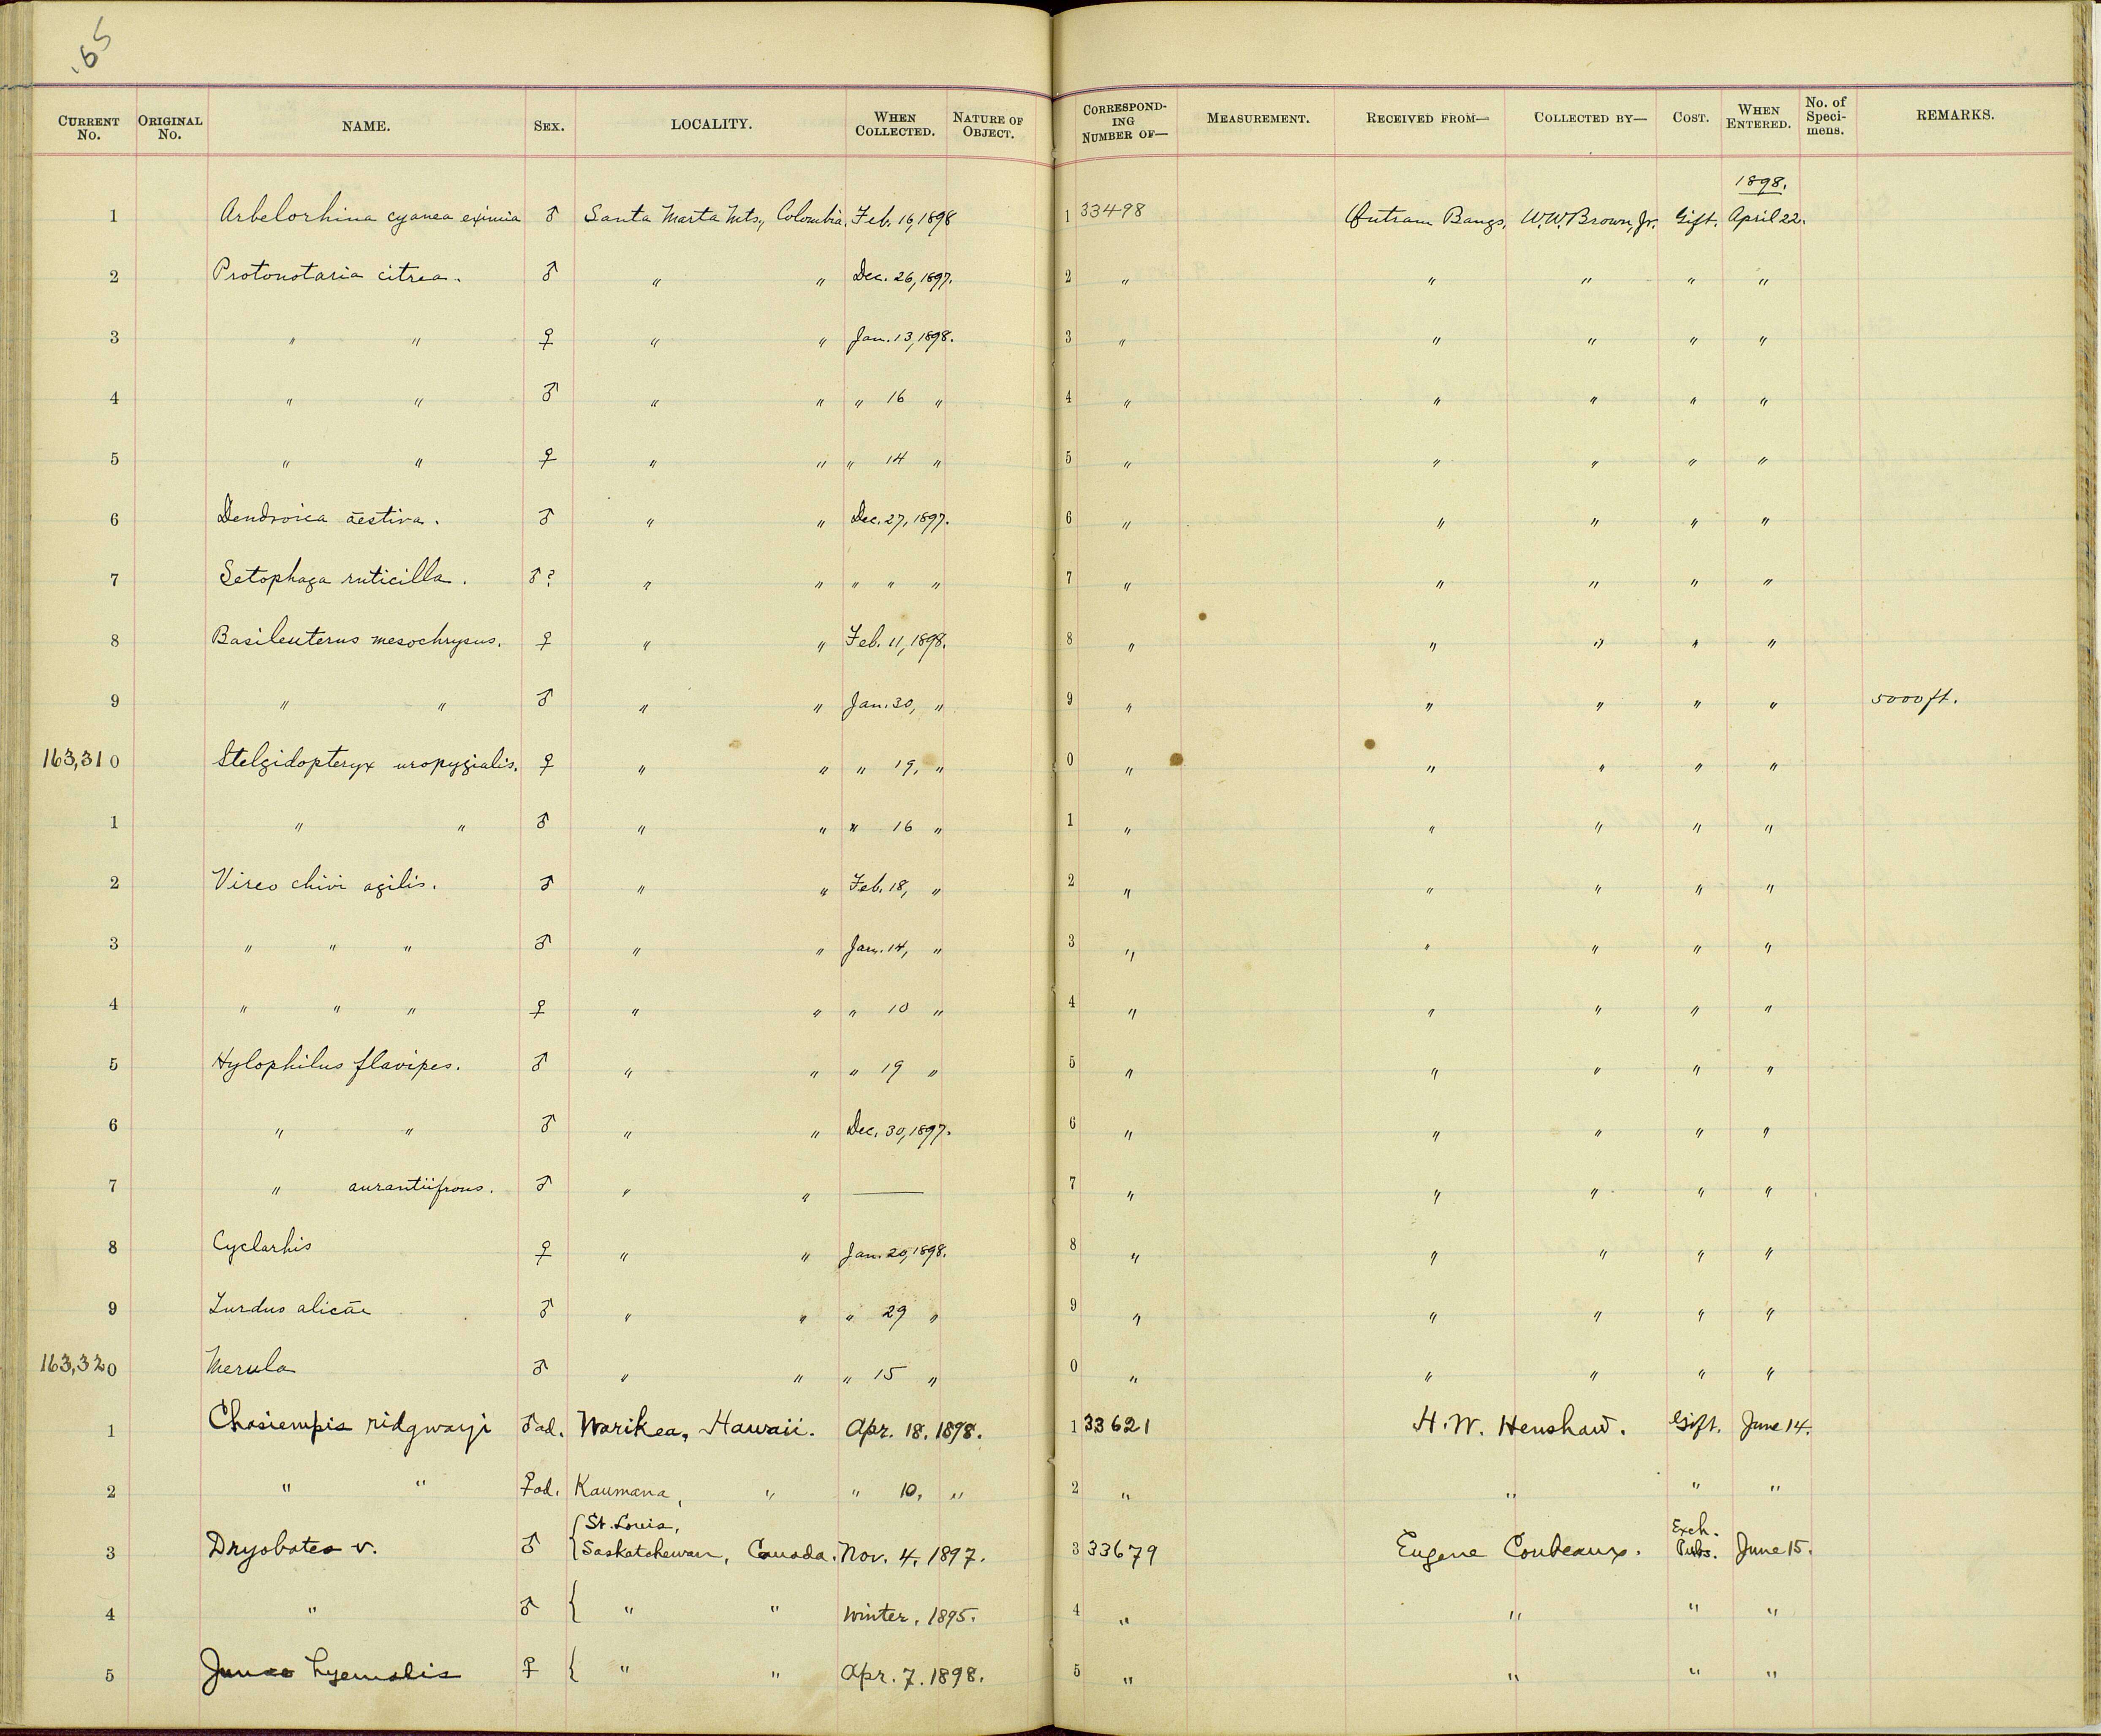 165
CURRENT No. ORIGINAL No. NAME. SEX. LOCALITY. WHEN COLLECTED. NATURE OF OBJECT. CORRESPOND-ING NUMBER OF— MEASUREMENT. RECEIVED FROM— COLLECTED BY— COST. WHEN ENTERED. No. of Speci-mens. REMARKS.
1898.
1 Arbelorhina cyanea eximia ♂ Santa Marta Mts., Colombia. Feb. 16, 1898 1 33498 Outram Bangs. W.W. Brown, Jr. Gift. April 22.
2 Protonotaria citrea. ♂ " " Dec. 26, 1897. 2 " " " " "
3 " " ♀ " " Jan. 13, 1898. 3 " " " " "
4 " " ♂ " " " 16 " 4 " " " " "
5 " " ♀ " " " 14 " 5 " " " " "
6 Dendroica aestiva. ♂ " " Dec. 27, 1897. 6 " " " " "
7 Setophaga ruticilla. ♂? " " " " " 7 " " " " "
8 Basileuterus mesochrysus. ♀ " " Feb. 11, 1898. 8 " " " " "
9 " " ♂ " " Jan. 30, " 9 " " " " " 5000 ft.
163,310 Stelgidopteryx uropygialis. ♀ " " " 19, " 0 " " " " "
1 " " ♂ " " " 16 " 1 " " " " "
2 Vireo chivi agilis. ♂ " " Feb. 18, " 2 " " " " "
3 " " " ♂ " " Jan. 14, " 3 " " " " "
4 " " " ♀ " " " 10 " 4 " " " " "
5 Hylophilus flavipes. ♂ " " " 19 " 5 " " " " "
6 " " ♂ " " Dec. 30, 1897. 6 " " " " "
7 " aurantiifrons. ♂ " " — 7 " " " " "
8 Cyclarhis ♀ " " Jan. 20, 1898. 8 " " " " "
9 Turdus aliciae ♂ " " " 29 " 9 " " " " "
163,320 Merula ♂ " " " 15 " 0 " " " " "
1 Chasiempis ridgwayi ♂ad. Warikea, Hawaii. Apr. 18. 1898. 1 33621 H. W. Henshaw. Gift. June 14.
2 " " ♀ad. Kaumana, " " 10, " 2 " " " "
3 Dryobates v. ♂ {St. Louis, Saskatchewan, Canada. Nov. 4, 1897. 3 33679 Eugene Coubeaux. Exch. Pubs. June 15.
4 " ♂ { " " Winter, 1895. 4 " " " "
5 Junco hyemalis ♀ { " " Apr. 7. 1898. 5 " " " "